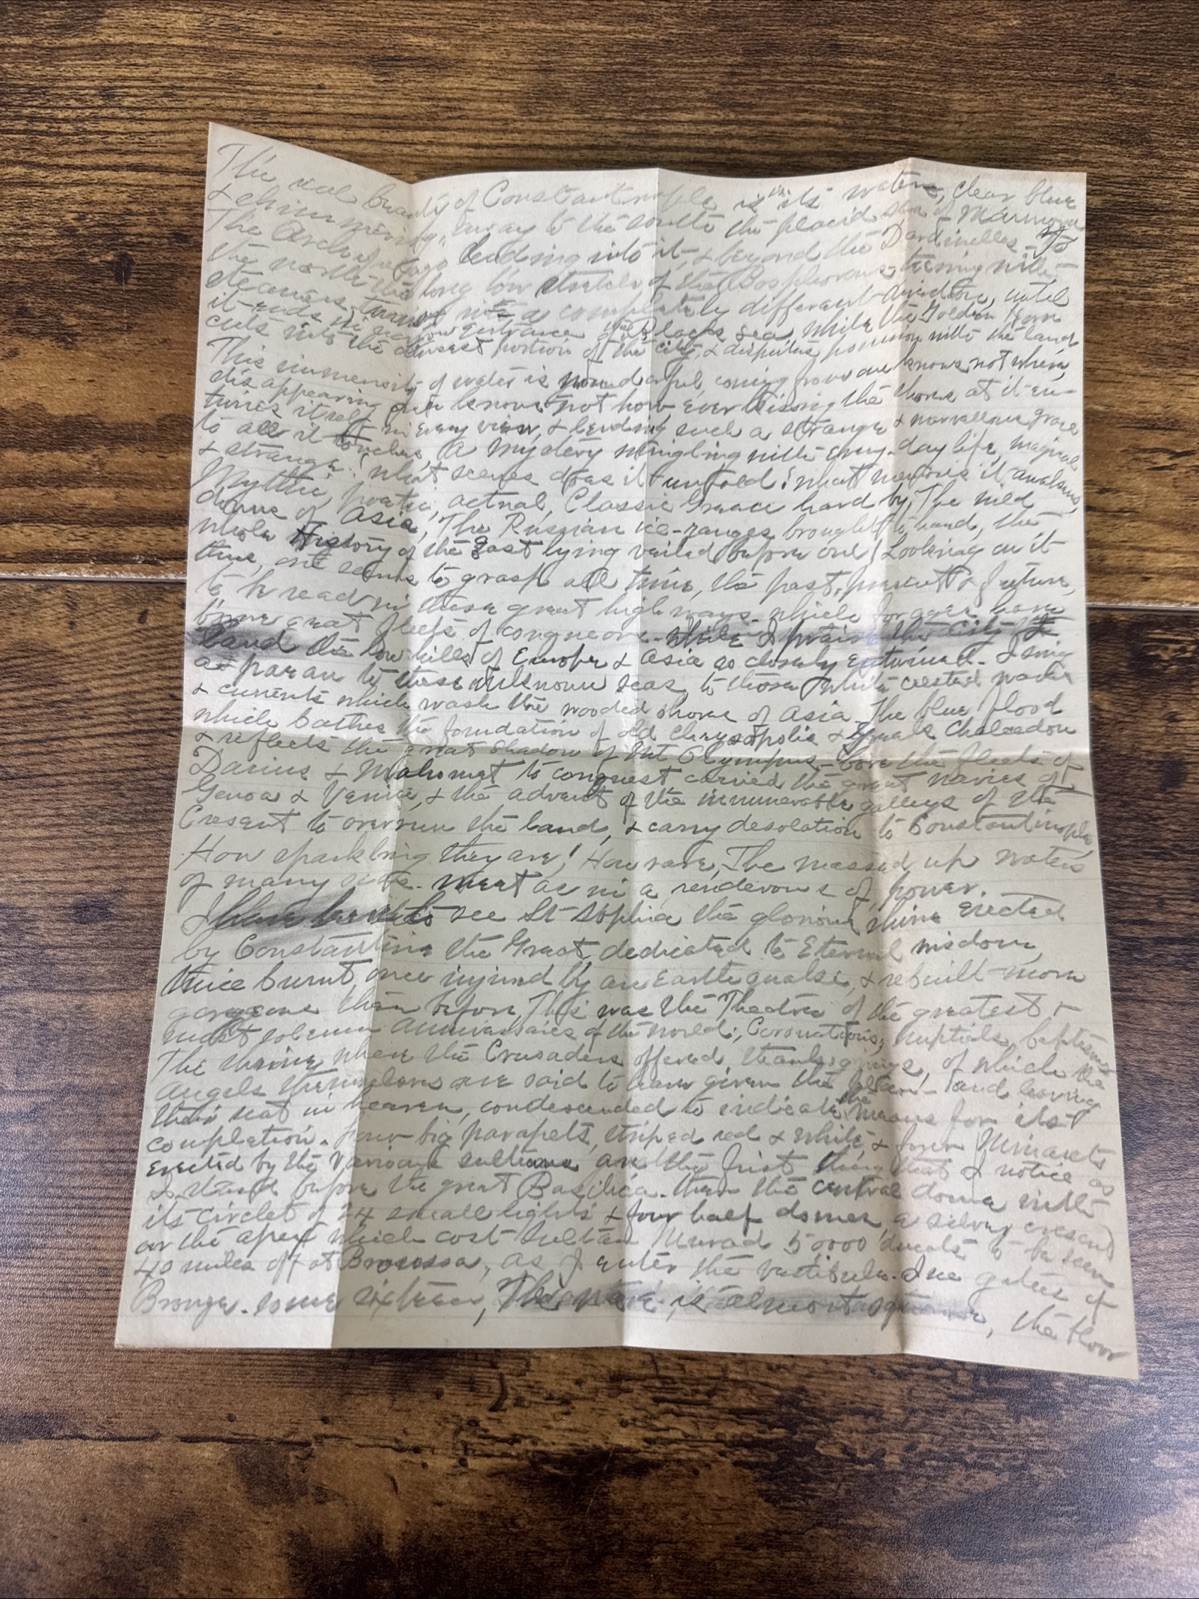 The real beauty of Constantinople is in its waters, clear blue
& shimmering, away to the south the placid Sea of Marmora
The Archipelago leading into it, & beyond the Dardinelles. To
the north the long low stretch of the Bosphorous, teeming with
steamers, turns into a completely different until
it ends the narrow entrance of the Black Sea while the Golden Horn
cuts into the densest portion of the city, & disputes possession with the land
This immensity of water is wonderful, coming from one knows not where,
disappearing one knows not how ever kissing the shores at it en-
twines itself in every view, & lending such a strange & marvellous grace
to all it touches. A mystery mingling with every-day life, magical
& strange! What scenes does it unfold! What memories it awakens,
Mythic, poetic, actual, Classic Greece hard by, The wild
of Asia, The Russian ice-ranges brought to hand, the
whole History of the East lying veiled before one! Looking on it
thus, one seems to grasp all time, the past, present & future,
to be read in these great highways which for ages have
borne great fleets of conquerors. While I praise the City &
land the low hills of Europe & Asia so closely entwined. I sing
a paean to these unknown seas, to those white crested waves
& currents which wash the wooded shores of Asia. The blue flood
which bathes the foundation of old Chrysopolis & Chalcedon
& reflects the great shadow of Mt Olympus. bore the fleets of
Darius & Mahomet to conquest carried the great navies of
Genoa & Venice & the advent of the innumerable galleys of the
Cresent to overrun the land, & carry desolation to Constantinople
How sparkling they are! How rare, The massed up waters
of many seas. meet as in a rendevous of power.
I have been to see St Sophia the glorious shrine erected
by Constantine the Great, dedicated to Eternal wisdom,
twice burnt, once injured by an Earthquake, & rebuilt more
gorgeous than before This was the Theatre of the greatest &
most solemn Anniversaries of the world; Coronations, nuptials, baptisms
The shrine where the Crusaders offered thanksgivings, of which the
Angels themselves are said to have given the plan! and leaving
their seat in heaven, condescended to indicate the means for its
completion. Four big parapets, striped red & white & four Minarets
erected by the various sultans are the first thing that I notice as
I stand before the great Basilica. then the central dome with
its circlet of 24 small lights & four half domes, a silver cresent
on the apex which cost Sultan Murad 50000 ducats to be seen
40 miles off at Broussa, as I enter the vestibule. Fine gates of
Bronze. some sixteen, The nave is almost square, the floor